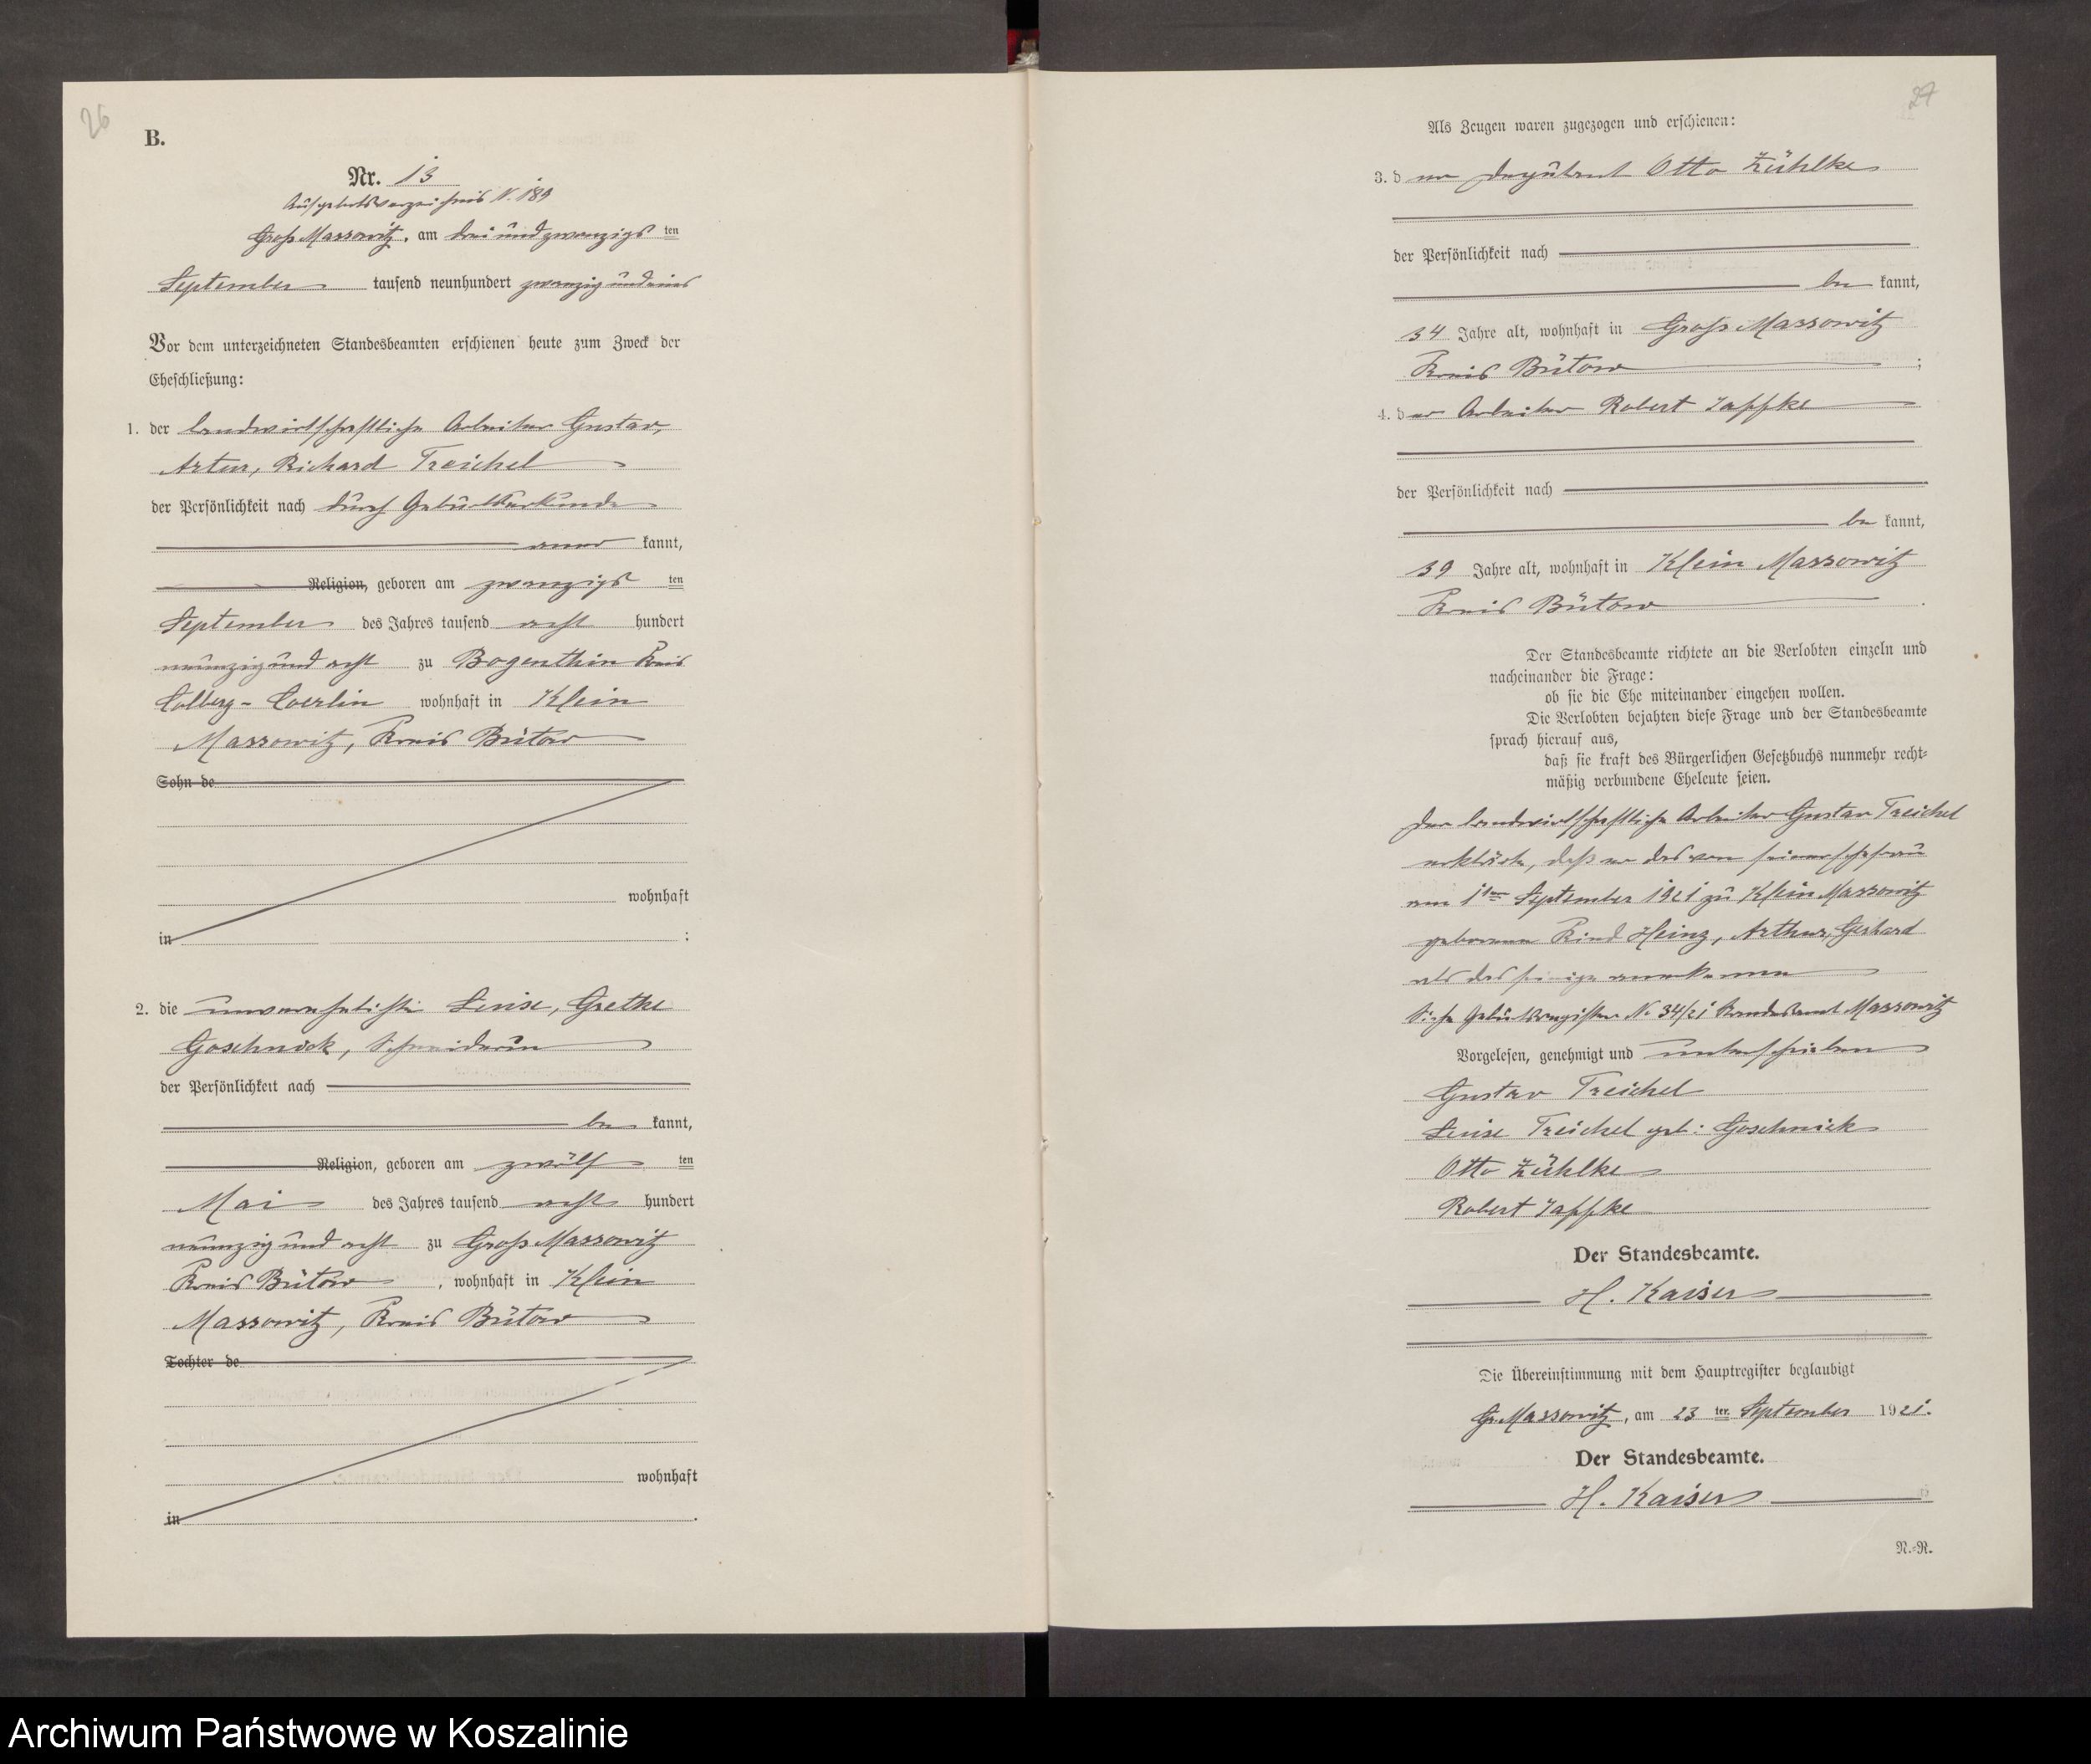 26
B.
Nr. 13
Aufgebotsverzeichnis N. 189
Groß Massowitz, am drei und zwanzigs ten
September tausend neunhundert zwanzig und eins
Vor dem unterzeichneten Standesbeamten erschienen heute zum Zweck der
Eheschließung:
1. der landwirtschaftliche Arbeiter Gustav,
Artur, Richard Treichel
der Persönlichkeit nach durch Geburtsurkunde
aner kannt,
Religion, geboren am zwanzigs ten
September des Jahres tausend acht hundert
neunzig und acht zu Bogenthin Kreis
Colberg - Coerlin wohnhaft in Klein
Massowitz, Kreis Bütow
Sohn de
wohnhaft
in :
2. die unverehelichte Luise, Grethe
Goschnick, Schneiderin
der Persönlichkeit nach
be kannt,
Religion, geboren am zwölf ten
Mai des Jahres tausend acht hundert
neunzig und acht zu Groß Massowitz
Kreis Bütow, wohnhaft in Klein
Massowitz, Kreis Bütow
Tochter de
wohnhaft
in .
27
Als Zeugen waren zugezogen und erschienen:
3. d er Otto Zühlke
der Persönlichkeit nach
be kannt,
34 Jahre alt, wohnhaft in Groß Massowitz
Kreis Bütow ;
4. d er Arbeiter Robert Jaffke
der Persönlichkeit nach
be kannt,
39 Jahre alt, wohnhaft in Klein Massowitz
Kreis Bütow .
Der Standesbeamte richtete an die Verlobten einzeln und
nacheinander die Frage:
ob sie die Ehe miteinander eingehen wollen.
Die Verlobten bejahten diese Frage und der Standesbeamte
sprach hierauf aus,
daß sie kraft des Bürgerlichen Gesetzbuchs nunmehr recht-
mäßig verbundene Eheleute seien.
Der landwirtschaftliche Arbeiter Gustav Treichel
erklärte, daß er das von seiner Ehefrau
am 1ten September 1921 zu Klein Massowitz
geborene Kind Heinz, Arthur, Gerhard
als das seinige anerkenne
Siehe Geburtsregister No 34/21 Standesamt Massowitz
Vorgelesen, genehmigt und unterschrieben
Gustav Treichel
Luise Treichel geb: Goschnick
Otto Zühlke
Robert Jaffke
Der Standesbeamte.
H. Kaiser
Die Übereinstimmung mit dem Hauptregister beglaubigt
Gr. Massowitz, am 23 ten September 1921.
Der Standesbeamte.
H. Kaiser
N.-R.
Archiwum Państwowe w Koszalinie